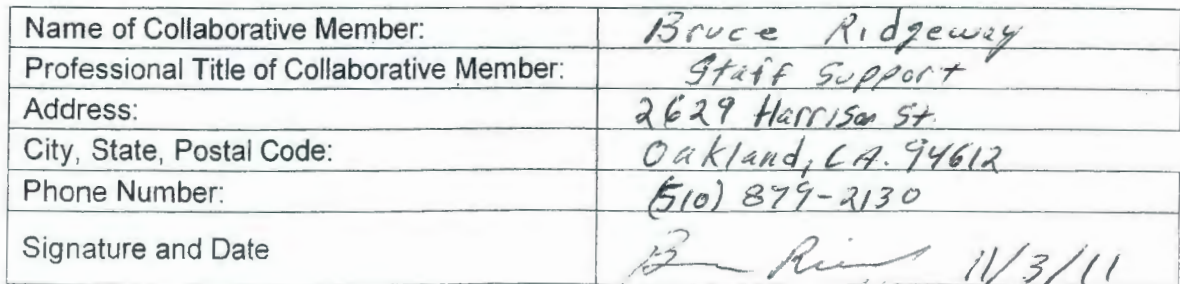 Name of Collaborative Member: Bruce Ridgeway
Professional Title of Collaborative Member: Staff Support
Address: 2629 Harrison St.
City, State, Postal Code: Oakland, CA. 94612
Phone Number: (510) 879-2130
Signature and Date 11/3/11